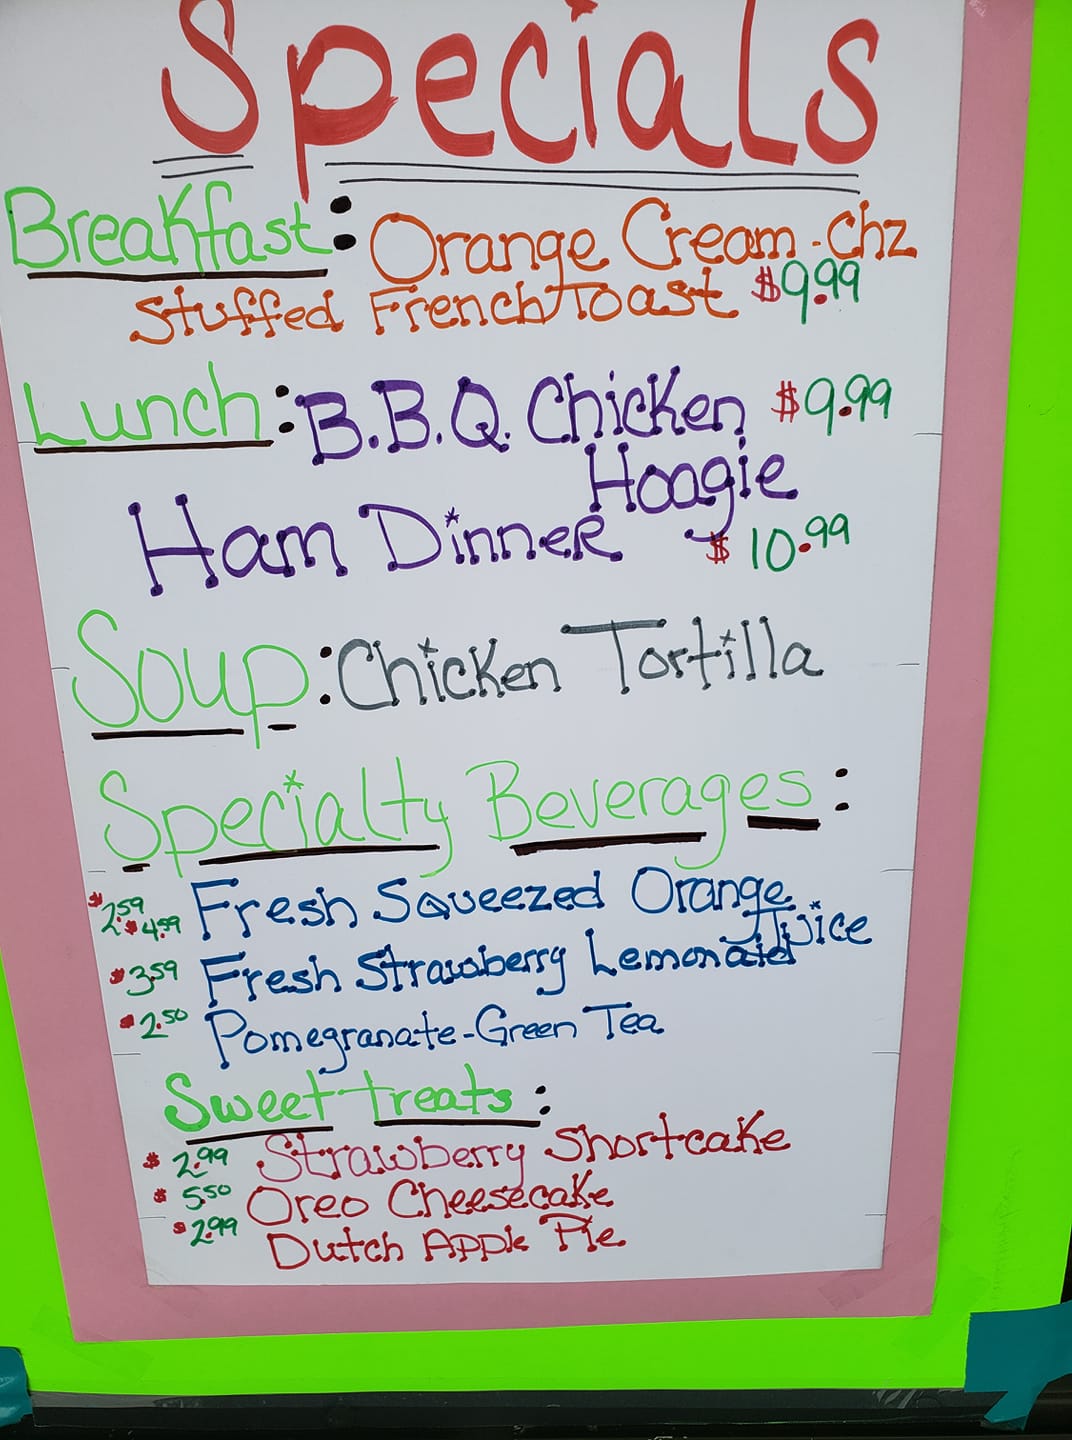 Specials
Breakfast: Orange Cream-Chz
Stuffed French Toast $9.99
Lunch: B.B.Q. Chicken $9.99
Hoagie
Ham Dinner $10.99
Soup: Chicken Tortilla
Specialty Beverages:
$2.59 $4.99 Fresh Squeezed Orange
Juice
$3.59 Fresh Strawberry Lemonaid
$2.50 Pomegranate-Green Tea
Sweet treats:
$2.99 Strawberry Shortcake
$5.50 Oreo Cheesecake
$2.99 Dutch Apple Pie